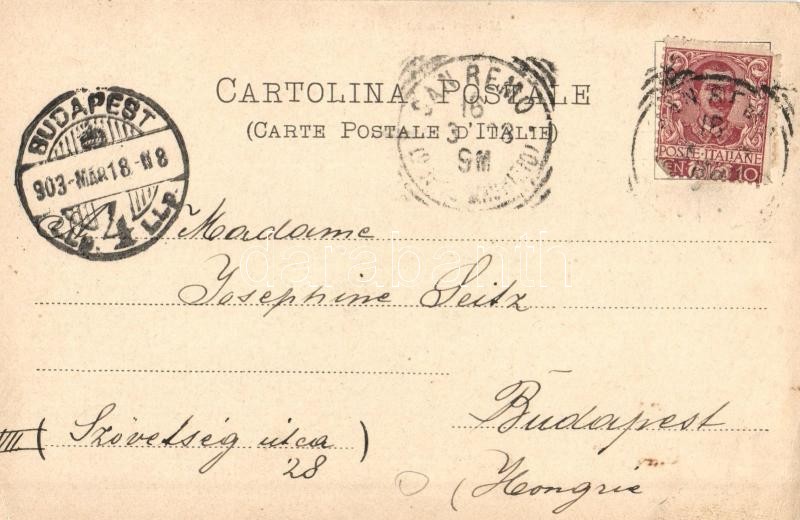 CARTOLINA POSTALE
(CARTE POSTALE D'ITALIE)
SAN REMO
16
3
9M
BUDAPEST
903-MAR 18-N8
4
POSTE·ITALIANE
10
darabanth
Madame
Josephine Seitz
Budapest
VIII ( Szövetség útca )
28
(Hongrie